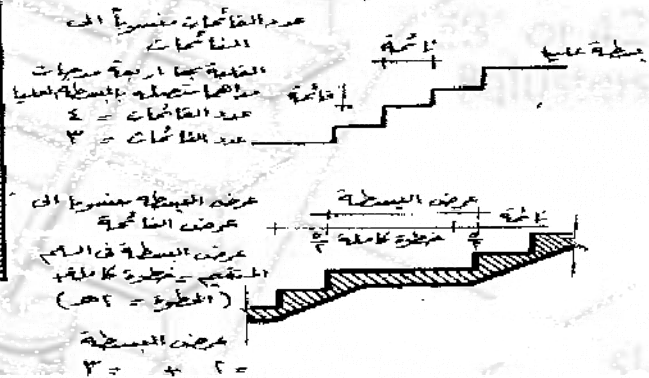 عدد القائمات منسوباً الى
النائمات
القلبة بها اربعة درجات
بالبسطة العليا
عدد القائمات = ٤
عدد النائمات = ٣
نائمة
قائمة
بسطة عليا
عرض البسطة منسوباً الى
عرض النائمة
عرض البسطة فى السلم
المستقيم = خطوة كاملة
(الخطوة = ٢
عرض البسطة
= ٢ + = ٣
عرض البسطة
نائمة
خطوة كاملة